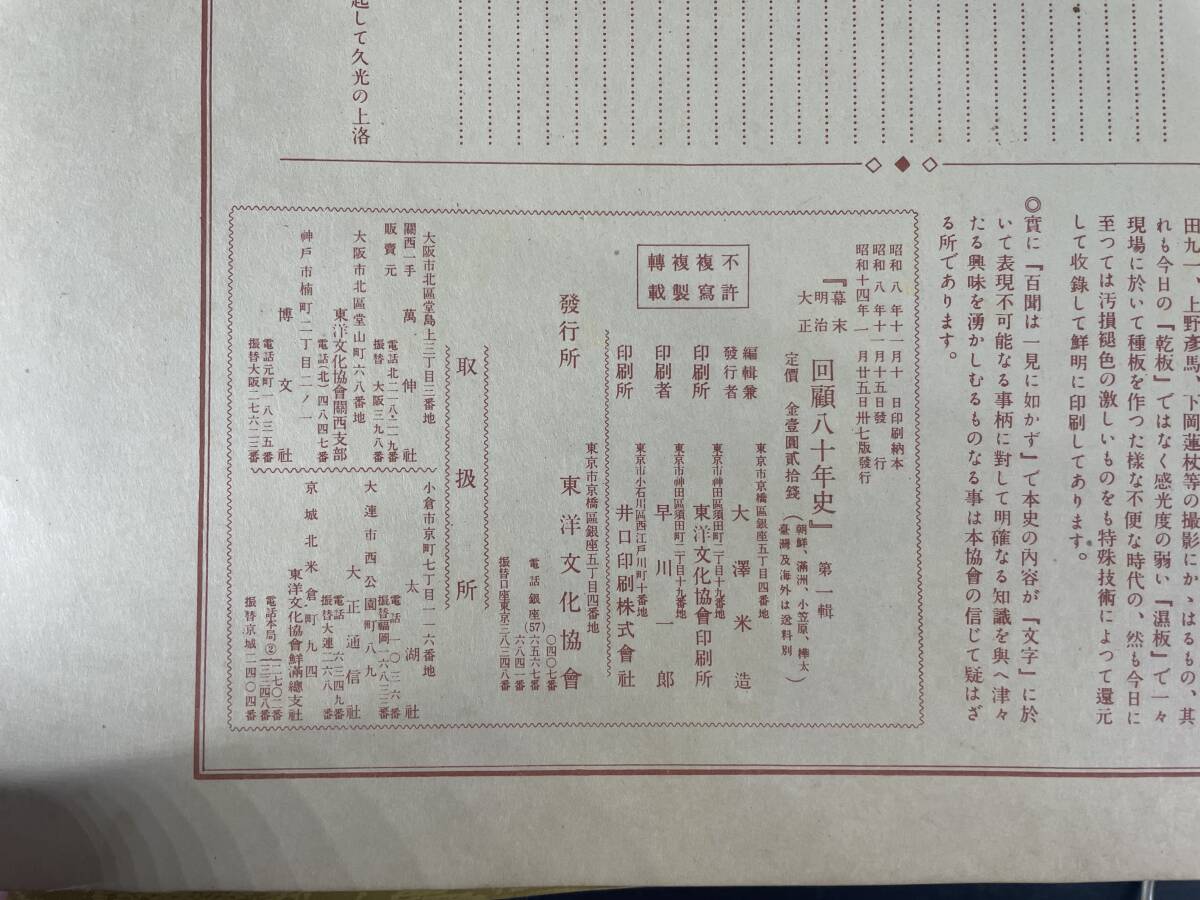 田九一、上野彥馬、下岡蓮杖等の撮影にかゝはるもの、其
れも今日の『乾板』ではなく感光度の弱い『濕板』で一々
現場に於いて種板を作つた樣な不便な時代の、然も今日に
至つては汚損褪色の激しいものをも特殊技術によつて還元
して收錄して鮮明に印刷してあります。
◎實に『百聞は一見に如かず』で本史の內容が『文字』に於
いて表現不可能なる事柄に對して明確なる知識を與へ津々
たる興味を湧かしむるものなる事は本協會の信じて疑はざ
る所であります。
起して久光の上洛
昭和八年十一月十日印刷納本
昭和八年十一月十五日發行
昭和十四年一月廿五日卅七版發行
『幕末明治大正回顧八十年史』第一輯
定價 金壹圓貳拾錢(朝鮮、滿洲、小笠原、樺太臺灣及海外は送料別)
不許
複寫
複製
轉載
東京市京橋區銀座五丁目四番地
編輯兼發行者 大澤米造
東京市神田區須田町二丁目十九番地
印刷所 東洋文化協會印刷所
東京市神田區須田町二丁目十九番地
印刷者 早川一郎
東京市小石川區西江戶川町十番地
印刷所 井口印刷株式會社
東京市京橋區銀座五丁目四番地
發行所 東洋文化協會
電話銀座(57)
〇四〇七番
六五六七番
六八四一番
振替口座東京三八三四八番
取扱所
大阪市北區堂島上三丁目三番地
關西一手販賣元 萬伸社
電話北二一八・二一九番
振替 大阪三九八番
大阪市北區堂山町六八番地
東洋文化協會關西支部
電話(北)四八四七番
神戶市楠町二丁目二ノ一
博文社
電話元町一八三五番
振替大阪二七六二三番
小倉市京町七丁目一一六番地
太湖社
電話 一〇三六番
振替福岡一六八三三番
大連市西公園町八九
大正通信社
電話 六三四九番
振替大連二六八番
京城北米倉町九四
東洋文化協會鮮滿總支社
電話本局②
三七〇二番
三三四八番
振替京城二二四〇四番